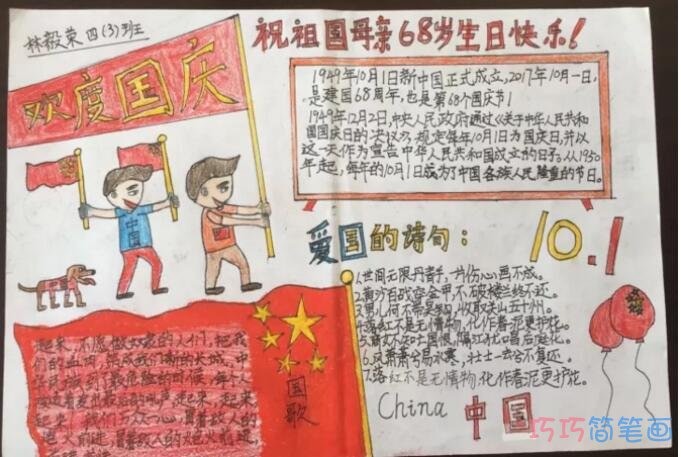 林毅荣 四(3)班
祝祖国母亲68岁生日快乐!
欢度国庆
1949年10月1日新中国正式成立,2017年10月一日,
是建国68周年,也是第68个国庆节!
1949年12月2日,中央人民政府通过《关于中华人民共和
国国庆日的决议》,规定每年10月1日为国庆日,并以
这一天作为宣告中华人民共和国成立的日子。从1950
年起,每年的10月1日成为了中国各族人民隆重的节日。
中国
爱国的诗句:
10.1
1.世间无限丹青手,一片伤心画不成。
2.黄沙百战穿金甲,不破楼兰终不还。
3.男儿何不带吴钩,收取关山五十州。
4.落红不是无情物,化作春泥更护花。
5.商女不知亡国恨,隔江犹唱后庭花。
6.风萧萧兮易水寒,壮士一去兮不复还。
7.落红不是无情物,化作春泥更护花。
起来,不愿做奴隶的人们,把我
们的血肉,筑成我们新的长城,中
华民族到了最危险的时候,每个人
被迫着发出最后的吼声,起来,起来
起来,我们万众一心,冒着敌人的
炮火前进,冒着敌人的炮火前进,
国歌
China 中国
巧巧简笔画